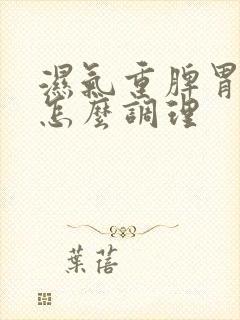 濕氣重脾胃
怎麼調理
葉蓓